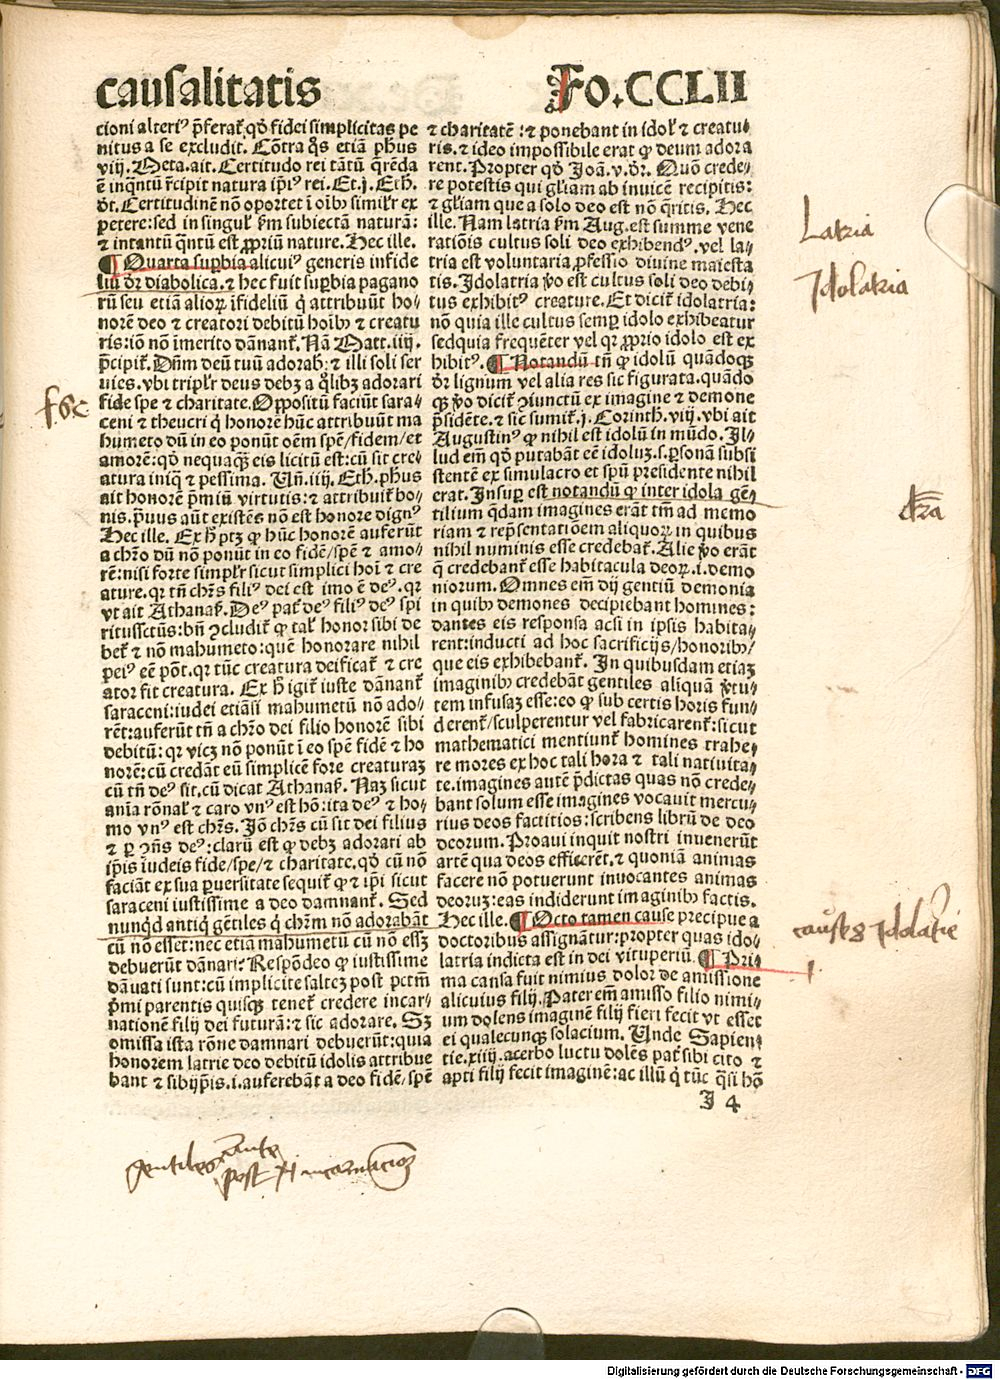 causalitatis
Fo.CCLII
cioni alteri⁹ p̄ferat᷑ qḋ fidei simplicitas pe
nitus a se excludit. Cōtra q̄s etiā ph̄us
viij. Meta. ait. Certitudo rei tātū q̄rēda
ē inqntū r̄cipit natura ip̄i⁹ rei. Et .j. Eth.
ḋt. Certitudinē nō oportet ī oīb⁹ simil̓r ex
petere: sed in singul̓ ẜm subiectā naturā:
⁊ intantū qntū est ꝓpriū nature. Hec ille.
¶ Quarta suꝑbia alicui⁹ generis infide
liū ḋr diabolica. ⁊ hec fuit suꝑbia pagano
rū seu etiā alioꝝ īfideliū q̇ attribuūt ho⸗
norē deo ⁊ creatori debitū hoīb⁹ ⁊ creatu
ris: iō nō īmerito dānant᷑. Nā Matt. iiij.
p̄cipit᷑. Dn̄m deū tuū adorab̓: ⁊ illi soli ser
uies. vbi tripl̓r deus debꝫ a q̇libꝫ adorari
fide spe ⁊ charitate. Oppositū faciūt sara⸗
ceni ⁊ theucri q̇ honorē hūc attribuūt ma
humeto dū in eo ponūt oēm spē/fidem/et
amorē: qḋ nequaqꝫ eis licitū est: cū sit cre⸗
atura iniq̄ ⁊ pessima. Vn̄. iiij. Eth. ph̄us
ait honorē p̄miū virtutis: ⁊ attribuit᷑ bo⸗
nis. p̄uus aūt existēs nō est honore dign⁹
Hec ille. Ex h̄ ptꝫ ꝙ hūc honorē auferūt
a chr̄o dū nō ponūt in eo fidē/spē ⁊ amo⸗
rē: nisi forte simpl̓r sicut simplici hoī ⁊ cre
ature. qꝛ tn̄ chr̄s fili⁹ dei est imo ē de⁹. qꝛ
vt ait Athanaẜ. De⁹ pat᷑ de⁹ fili⁹ de⁹ spi
ritussctūs: bn̄ ↄcludit᷑ ꝙ tal̓ honor sibi de
bet᷑ ⁊ nō mahumeto: quē honorare nihil
pei⁹ eē pōt. qꝛ tūc creatura deificat᷑ ⁊ cre
ator fit creatura. Ex h̄ igit᷑ iuste dānant᷑
saraceni: iudei etiāsi mahumetū nō ado⸗
rēt: auferūt tn̄ a chr̄o dei filio honorē sibi
debitū: qꝛ vicꝫ nō ponūt ī eo spē fidē ⁊ ho
norē: cū credāt eū simplicē fore creaturaꝫ
cū tn̄ de⁹ sit. cū dicat Athanaẜ. Naꝫ sicut
aīa rōnal̓ ⁊ caro vn⁹ est hō: ita de⁹ ⁊ ho⸗
mo vn⁹ est chr̄s. Iō chr̄s cū sit dei filius
⁊ ꝑ ↄn̄s de⁹: clarū est ꝙ debꝫ adorari ab
ip̄is iudeis fide/spe/⁊ charitate. qḋ cū nō
faciāt ex sua ꝑuersitate sequit᷑ ꝙ ⁊ ip̄i sicut
saraceni iustissime a deo damnant᷑. Sed
nunqd antiq̇ gētiles q̇ chr̄m nō adorabāt
cū nō esset: nec etiā mahumetū cū nō essꝫ
debuerūt dānari? Respōdeo ꝙ iustissime
dāuati sunt: cū implicite saltez post pctm̄
p̄mi parentis quisqꝫ tenet᷑ credere incar⸗
nationē filij dei futurā: ⁊ sic adorare. Sꝫ
omissa ista rōne damnari debuerūt: quia
honorem latrie deo debitū idolis attribue
bant ⁊ sibijp̄is. i. auferebāt a deo fidē/spē
⁊ charitatē: ⁊ ponebant in idol̓ ⁊ creatu⸗
ris. ⁊ ideo impossibile erat ꝙ deum adora
rent. Propter qḋ Joā. v. ḋr. Quō crede⸗
re potestis qui gl̓iam ab inuicē recipitis:
⁊ gl̓iam que a solo deo est nō q̄ritis. Hec
ille. Nam latria ẜm Aug. est summe vene
rationis cultus soli deo exhibend⁹. vel la⸗
tria est voluntaria ꝓfessio diuine maiesta
tis. Idolatria ꝟo est cultus soli deo debi⸗
tus exhibit⁹ creature. Et dicit᷑ idolatria:
nō quia ille cultus semꝑ idolo exhibeatur
sedquia frequēter vel qꝛ ꝓprio idolo est ex
hibit⁹. ¶ Notandū tn̄ ꝙ idolū quādoqꝫ
ḋr lignum vel alia res sic figurata. quādo
qꝫ ꝟo dicit᷑ ↄiunctū ex imagine ⁊ demone
p̄sidēte. ⁊ sic sumit᷑ .j. Corinth. viij. vbi ait
Augustin⁹ ꝙ nihil est idolū in mūdo. Il⸗
lud em̄ qḋ putabāt eē idoluꝫ. s. ꝑsonā subsi
stentē ex simulacro et spū presidente nihil
erat. Insuꝑ est notandū ꝙ inter idola gē⸗
tilium qdam imagines erāt tm̄ ad memo
riam ⁊ rep̄sentatiōem aliquoꝝ in quibus
nihil numinis esse credebat᷑. Alie ꝟo erāt
q̄ credebant᷑ esse habitacula deoꝝ .i. demo
niorum. Omnes em̄ dij gentiū demonia
in quib⁹ demones decipiebant homines:
dantes eis responsa acsi in ipsis habita⸗
rent: inducti ad hoc sacrificijs/honorib⁹/
que eis exhibebant᷑. In quibusdam etiaꝫ
imaginib⁹ credebāt gentiles aliquā ꝟtu⸗
tem infusaꝫ esse: eo ꝙ sub certis horis fun⸗
derent᷑/sculperentur vel fabricarent᷑: sicut
mathematici mentiunt᷑ homines trahe⸗
re mores ex hoc tali hora ⁊ tali natiuita⸗
te. imagines autē p̄dictas quas nō crede⸗
bant solum esse imagines vocauit mercu⸗
rius deos factitios: scribens librū de deo
deorum. Proaui inquit nostri inuenerūt
artē qua deos efficerēt. ⁊ quoniā animas
facere nō potuerunt inuocantes animas
deoruꝫ: eas indiderunt imaginib⁹ factis.
Hec ille. ¶ Octo tamen cause precipue a
doctoribus assignātur: propter quas ido⸗
latria indicta est in dei vituperiū. ¶ Pri⸗
ma causa fuit nimius dolor de amissione
alicuius filij. Pater em̄ amisso filio nimi⸗
um dolens imaginē filij fieri fecit vt esset
ei qualecunqꝫ solacium. Unde Sapien⸗
tie. xiiij. acerbo luctu dolēs pat᷑ sibi cito ⁊
apti filij fecit imaginē: ac illū q̇ tūc q̄si hō
I 4
Latria
Idolatria
dr̄a
causes Idolatrie
1
gentiles ante
post incarnacioꝫ
Digitalisierung gefördert durch die Deutsche Forschungsgemeinschaft - DFG